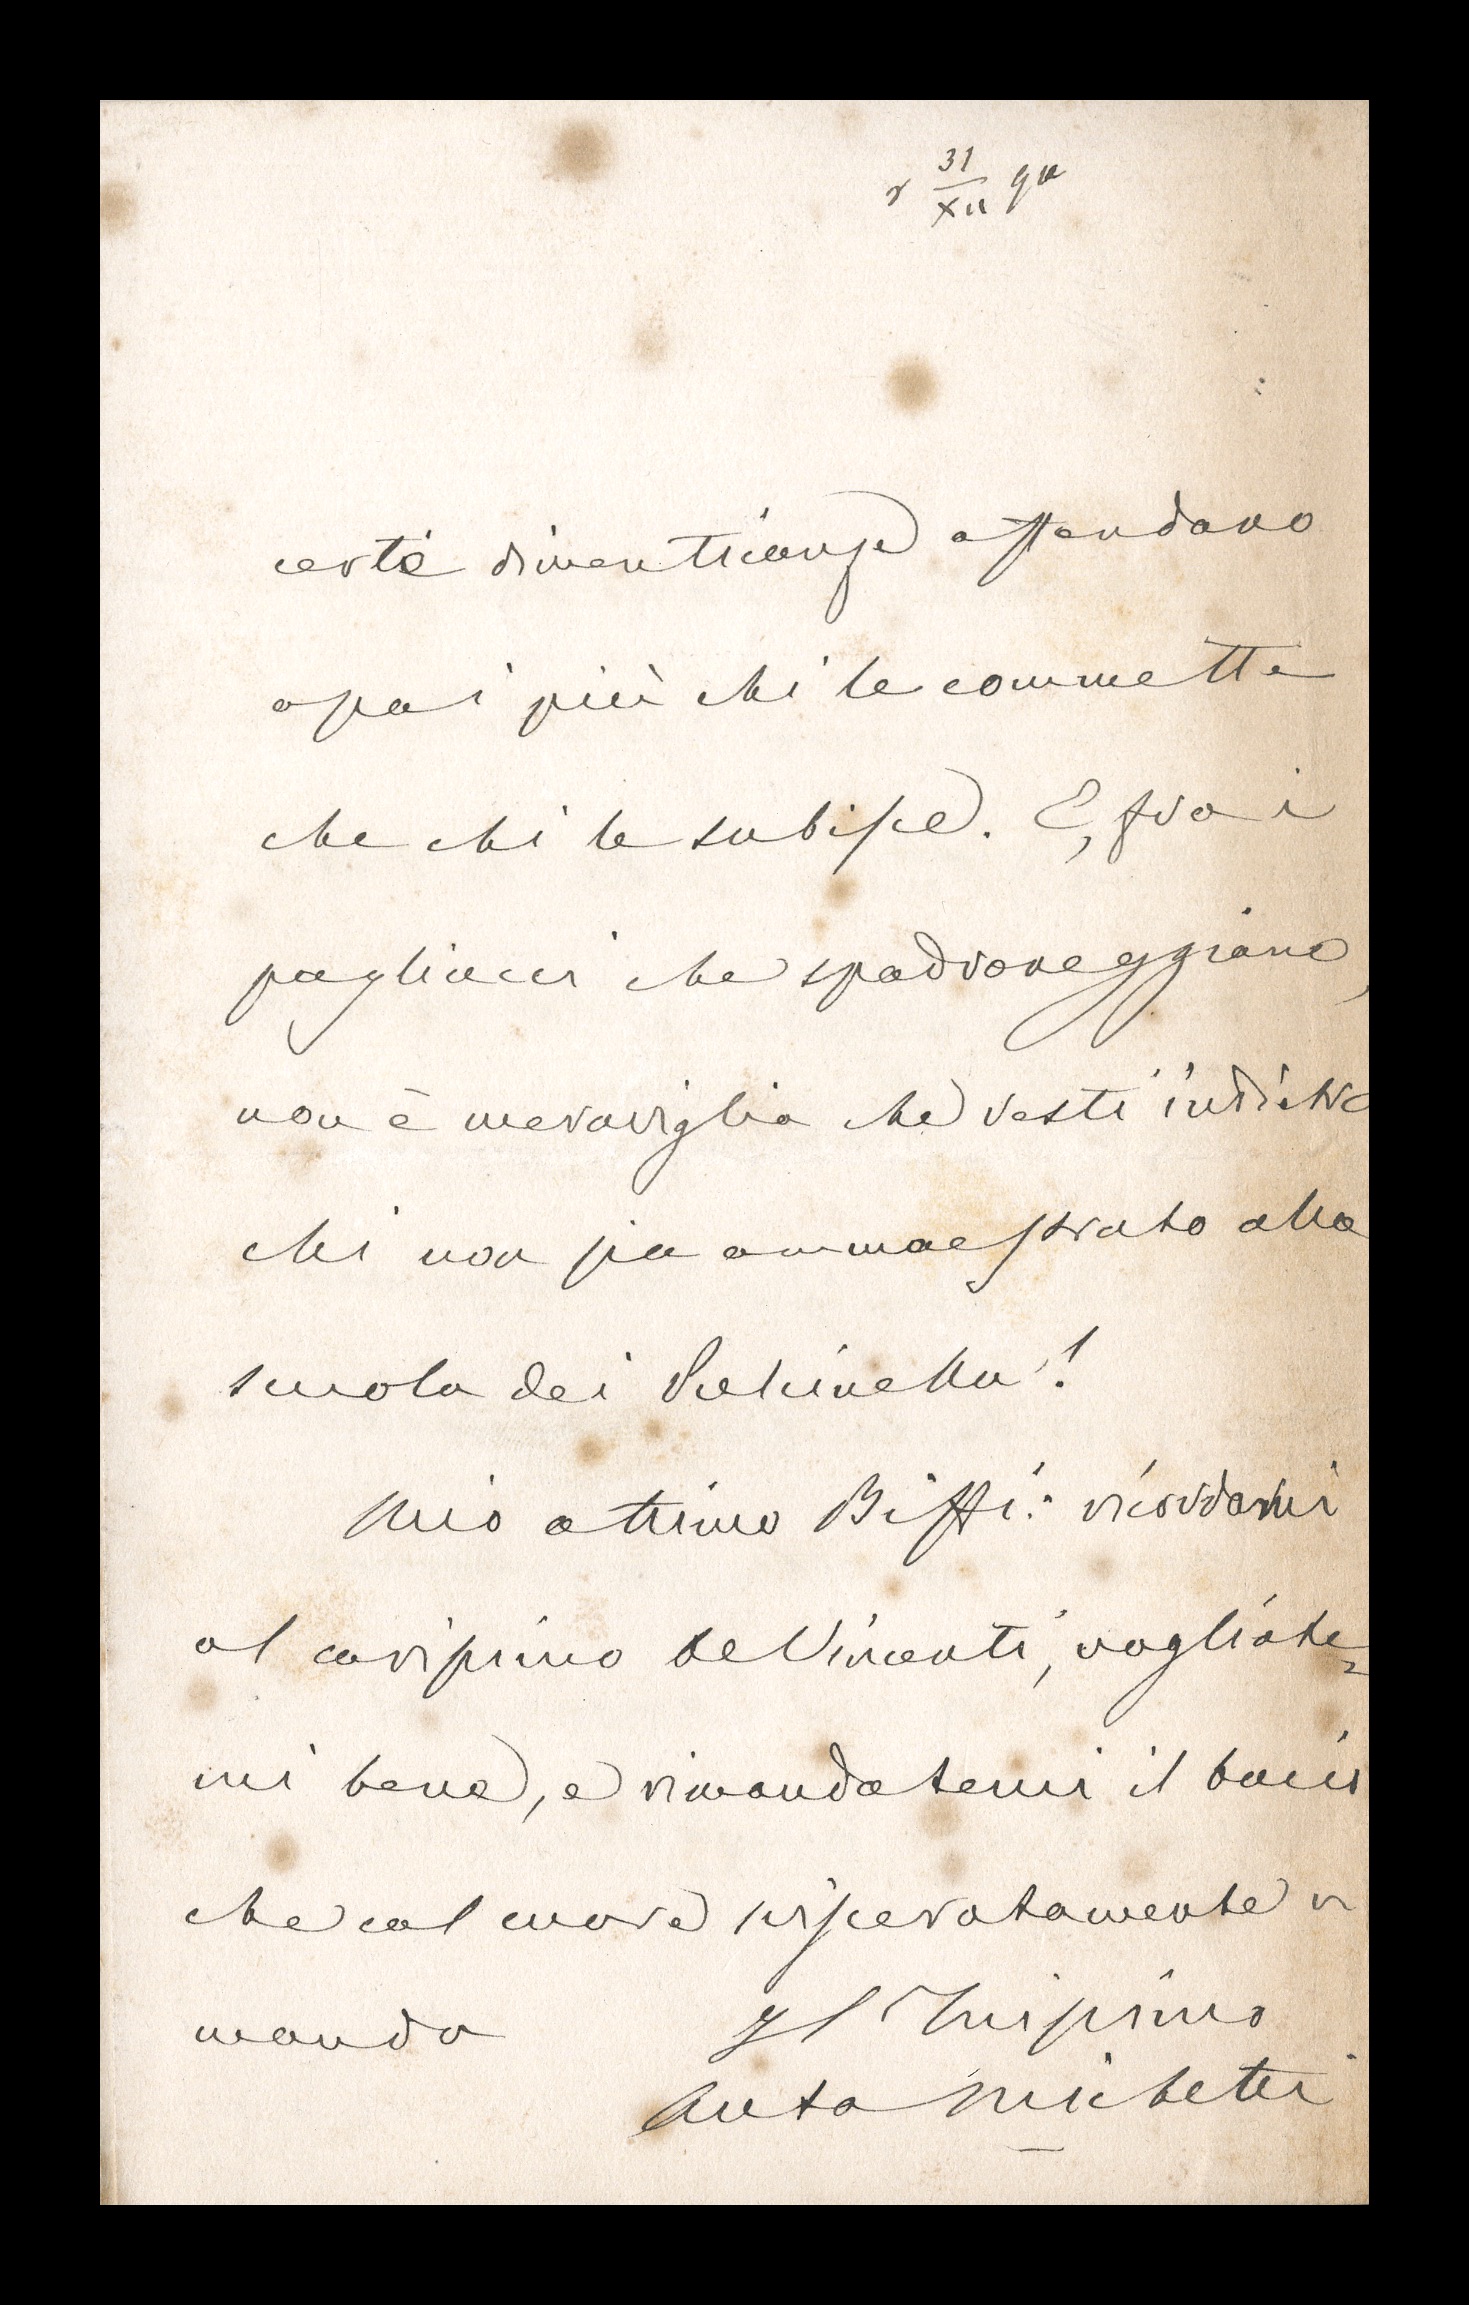 r 31/XII 90
certe dimenticanze offendano
assai più chi le commette
che chi le subisce. E, fra i
pagliacci che spadroneggiano,
non è meraviglia che resti indietro
chi non sia ammaestrato alla
scuola dei Pulcinella!
Mio ottimo Biffi: ricordami
al carissimo De Vincenti, vogliate=
mi bene, e rimandatemi il bacio
che col cuore svisceratamente vi
mando
Il Vrissimo
Anto Michetti